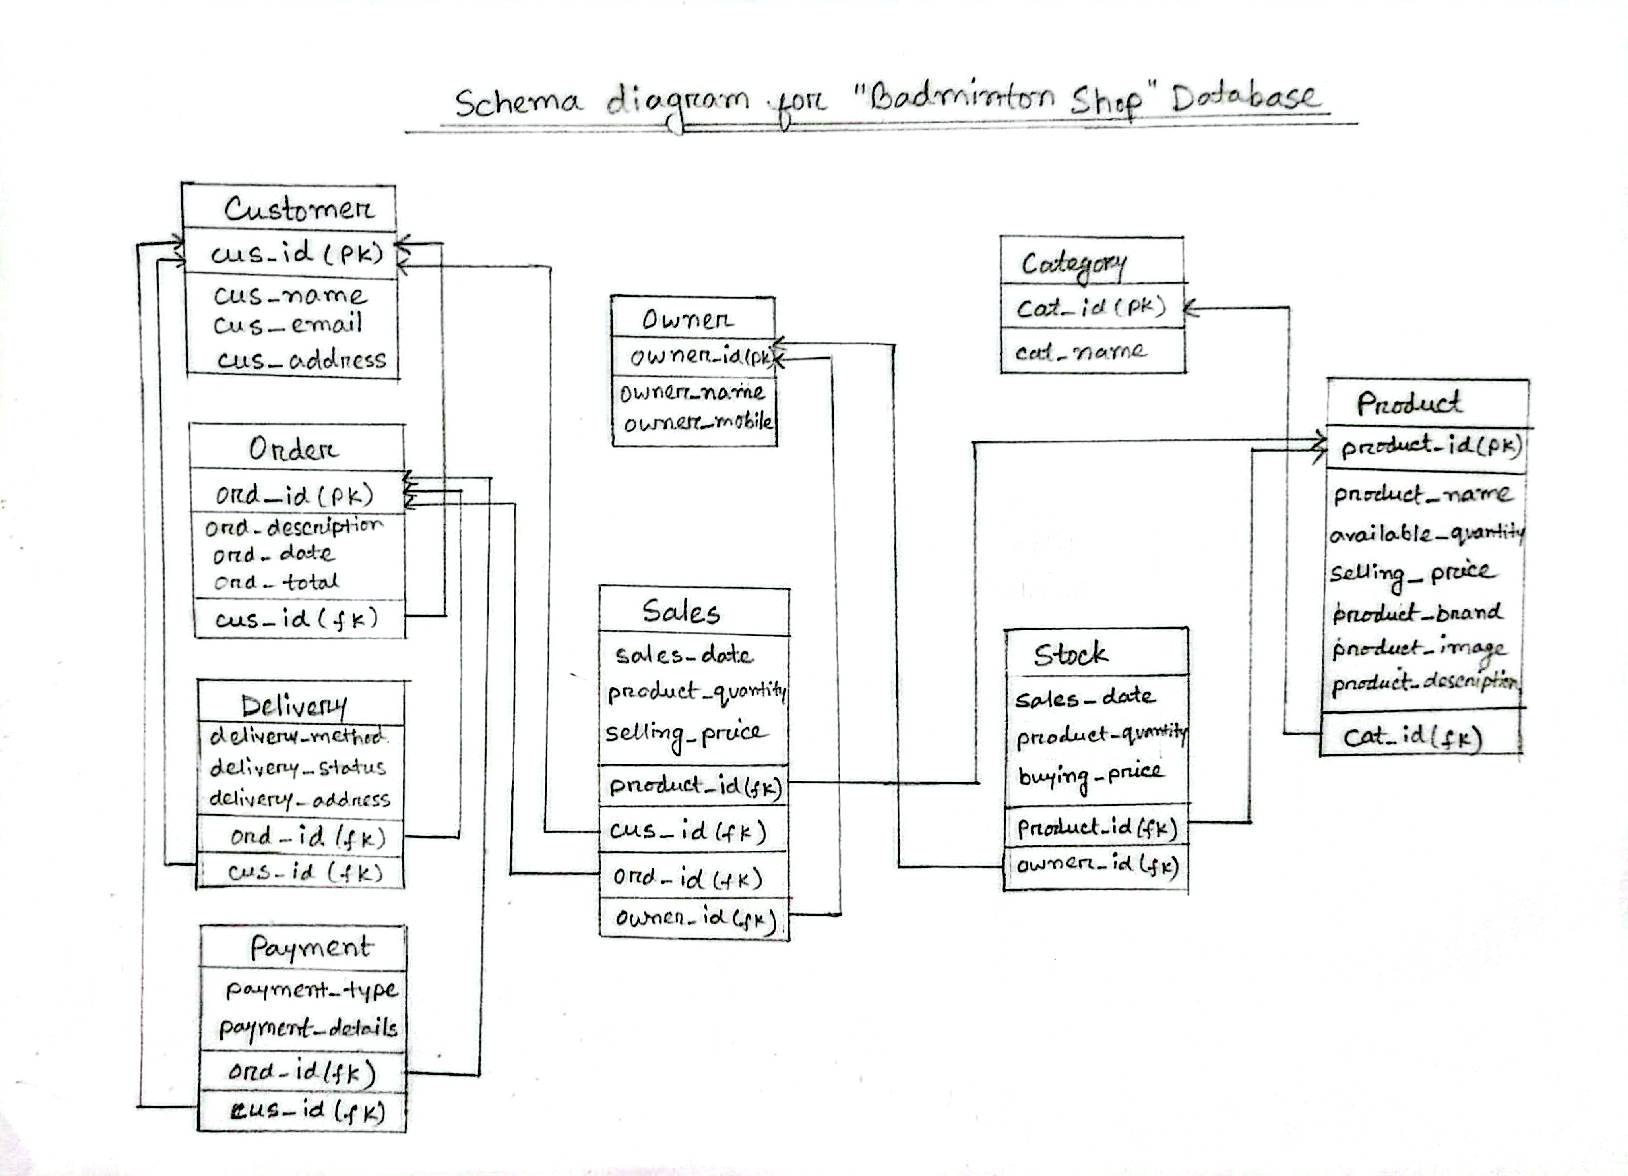 Schema diagram for "Badminton Shop" Database
Customer
cus_id (pk)
cus_name
cus_email
cus_address
Order
ord_id (pk)
ord_description
ord_date
ord_total
cus_id (fk)
Delivery
delivery_method
delivery_status
delivery_address
ord_id (fk)
cus_id (fk)
Payment
payment_type
payment_details
ord_id (fk)
cus_id (fk)
Owner
owner_id (pk)
owner_name
owner_mobile
Sales
sales_date
product_quantity
selling_price
product_id (fk)
cus_id (fk)
ord_id (fk)
owner_id (fk)
Category
cat_id (pk)
cat_name
Stock
sales_date
product_quantity
buying_price
product_id (fk)
owner_id (fk)
Product
product_id (pk)
product_name
available_quantity
selling_price
product_brand
product_image
product_description
cat_id (fk)